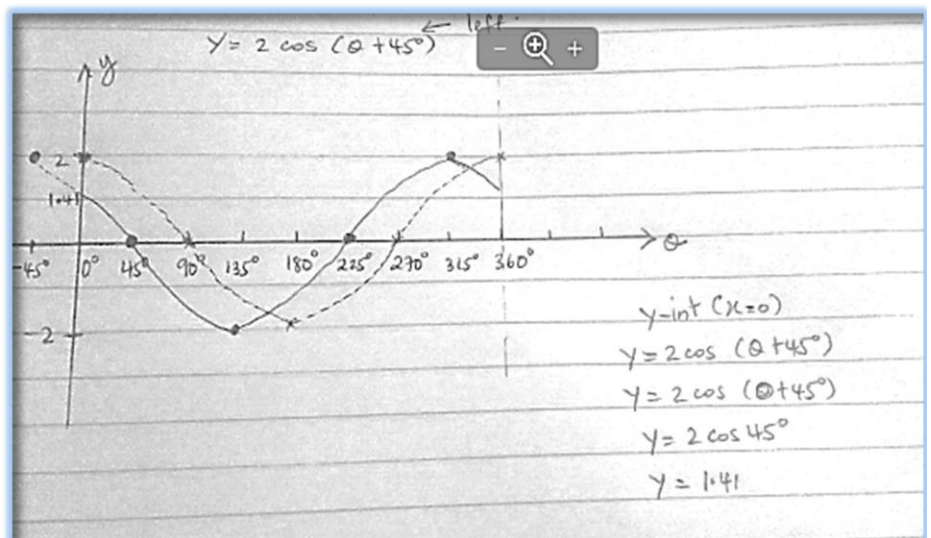 ← left.
y = 2 cos (θ + 45°)
y
2
1.41
-45° 0° 45° 90° 135° 180° 225° 270° 315° 360° θ
-2
y-int (x=0)
y = 2 cos (θ + 45°)
y = 2 cos (0 + 45°)
y = 2 cos 45°
y = 1.41